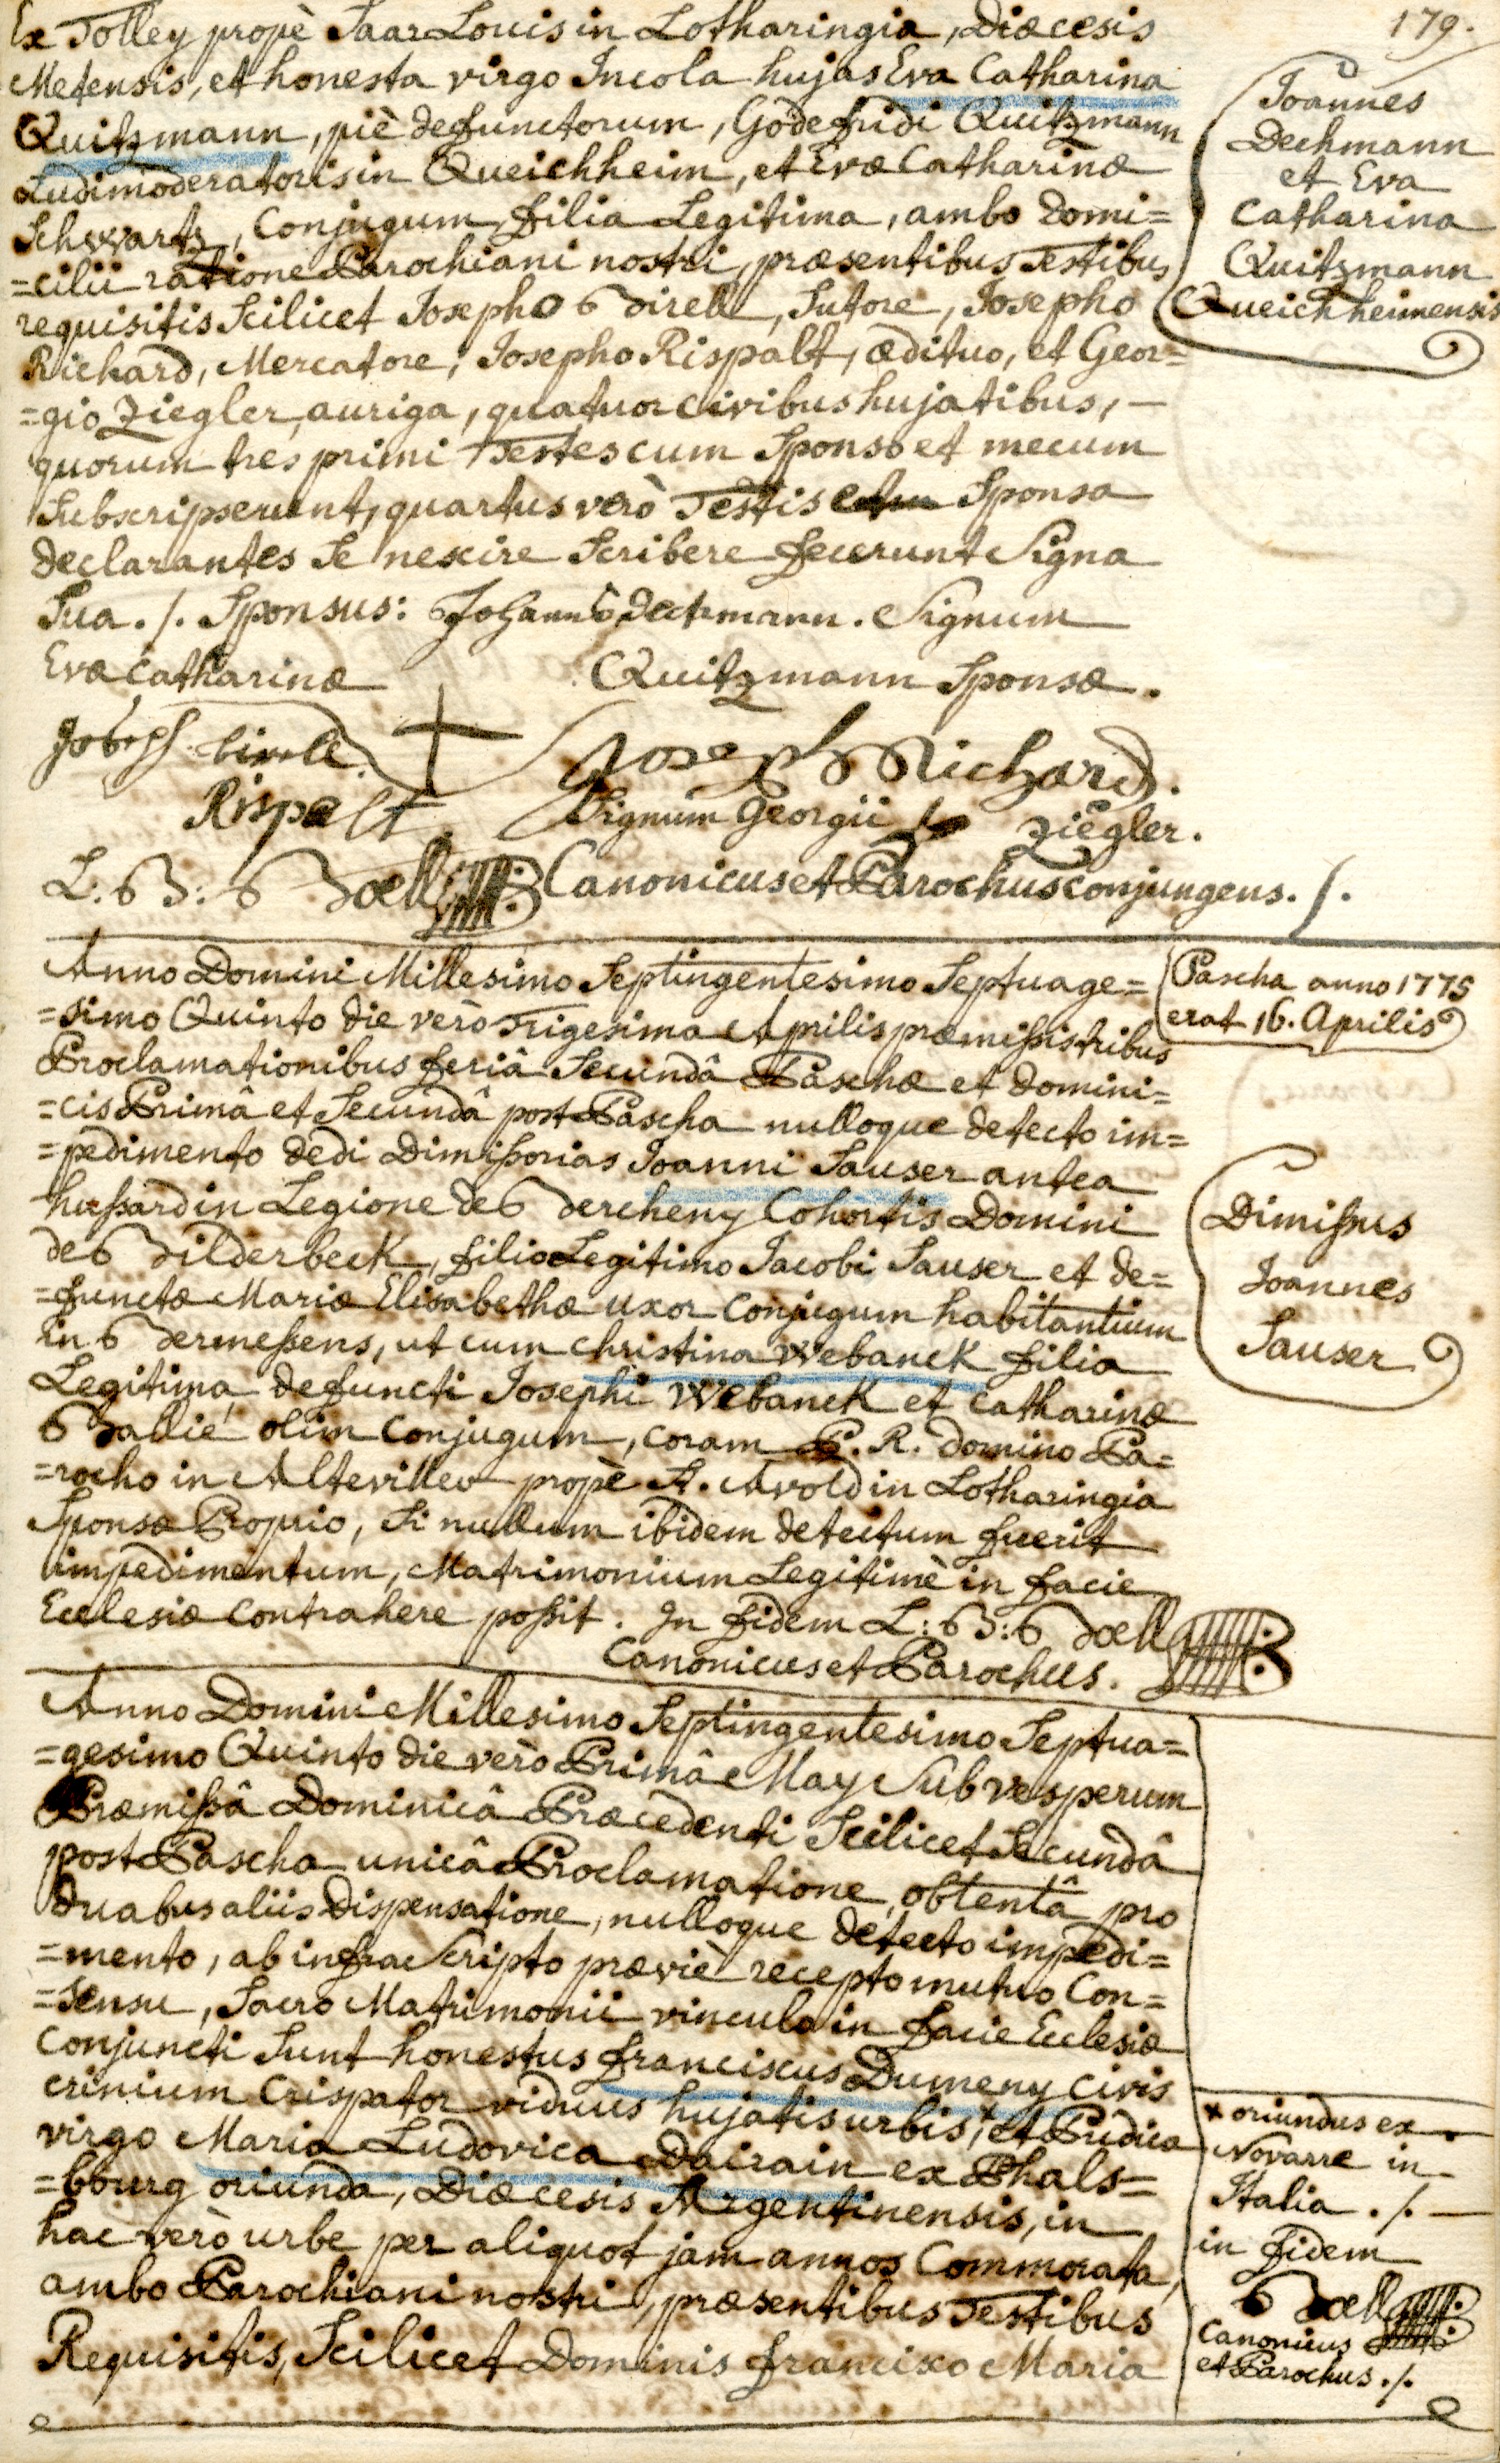 179.
Ex Tolley propè SaarLouis in Lotharingia, Diœcesis
Metensis, et honesta virgo Incola hujas Eva Catharina
Quitzmann, piè defunctorum, Godefridi Quitzmann
Ludimoderatoris in Queichheim, et Evæ Catharinæ
Schwartz, Conjugum filia Legitima, ambo Domi=
=cilii ratione Parochiani nostri, præsentibus Testibus
requisitis Scilicet Josepho Birell, Sutore, Josepho
Richard, Mercatore, Josepho Rispalt, ædituo, et Geor=
=gio Ziegler, auriga, quatuor civibus hujatibus, –
quorum tres primi Testes cum Sponso et mecum
Subscripserunt, quartus verò Testis Sponsa
declarantes Se nescire Scribere fecerunt Signa
Sua ./. Sponsus: Johannes dechmann. Signum
Evæ Catharinæ Quitzmann Sponsæ.
Joseph birelle. Joseph Richard.
Rispalt Signum Georgii Ziegler.
L: B: Bœll Canonicus et Parochus conjungens ./.
Joannes
Dechmann
et Eva
Catharina
Quitzmann
Queichheimensis
Anno Domini Millesimo Septingentesimo Septuage=
=simo Quinto die verò Trigesima Aprilis præmissis tribus
Proclamationibus feriâ Secundâ Paschæ et Domini=
=cis Primâ et Secundâ post Pascha nulloque detecto im=
=pedimento dedi Dimissorias Joanni Sauser antea
hussard in Legione de Bercheny Cohortis Domini
de Bilderbeck, filio Legitimo Jacobi Sauser et de=
=functæ Mariæ Elisabethæ uxor Conjugum habitantium
in Bermessens, ut cum Christina Webanck filia
Legitima, defuncti Josephi Webanck et Catharinæ
Ballie olim Conjugum, coram P. R. Domino Pa=
=rocho in Alteviller propè St. Avold in Lotharingia
Sponsæ Proprio, Si nullum ibidem detectum fuerit
impedimentum, Matrimonium Legitimè in facie
Ecclesiæ Contrahere possit. In fidem L: B: Bœll
Canonicus et Parochus.
Pascha anno 1775
erat 16. Aprilis
Dimissus
Joannes
Sauser
Anno Domini Millesimo Septingentesimo Septua=
=gesimo Quinto die verò Primâ May Sub vesperum
Præmissâ Dominicâ Præcedenti Scilicet Secundâ
post Pascha unicâ Proclamatione, obtentâ pro
duabus aliis Dispensatione, nulloque detecto impedi=
=mento, ab infra Scripto præviè recepto mutuo Con=
=sensu, Sacro Matrimonii vinculo in facie Ecclesiæ
Conjuncti Sunt honestus franciscus Dumeny civis
crinium Crispator viduus hujatis urbis,* et Pudica
virgo Maria Ludovica Dairain ex Phals=
=bourg oriunda, Diœcesis Argentinensis, in
hac verò urbe per aliquot jam annos Commorata,
ambo Parochiani nostri, præsentibus Testibus
Requisitis, Scilicet Dominis francisco Maria
* oriundus ex
Novarre in
Italia ./. –
in fidem
Bœll
Canonicus
et Parochus ./.